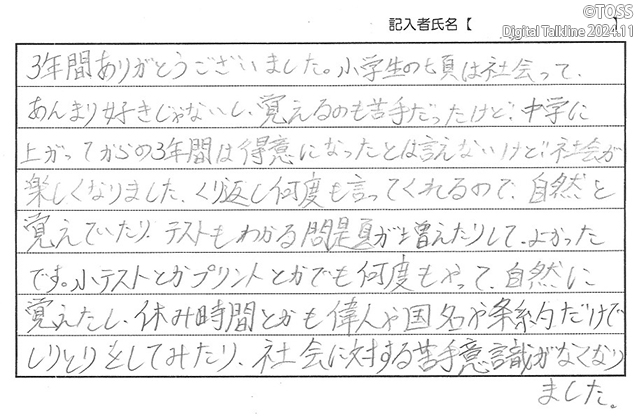 ©TOSS
Digital Talkline 2024.11
記入者氏名【 】
3年間ありがとうございました。小学生の頃は社会って、
あんまり好きじゃないし、覚えるのも苦手だったけど、中学に
上がってからの3年間は得意になったとは言えないけど社会が
楽しくなりました。くり返し何度も言ってくれるので、自然と
覚えていたり、テストもわかる問題が増えたりして、よかった
です。小テストとかプリントとかでも何度もやって、自然に
覚えたし、休み時間とかも偉人や国名や条約だけで
しりとりをしてみたり、社会に対する苦手意識がなくなり
ました。